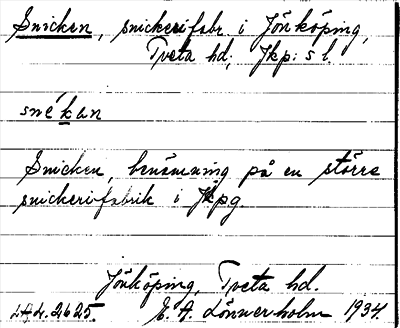 Snicken, snickerifabr. i Jönköping,
Tveta hd; Jkp: s l.
snékan
Snicken, benämning på en större
snickerifabrik i Jkpg.
Jönköping, Tveta hd.
LAL. 2625. E. A. Lönnerholm 1934